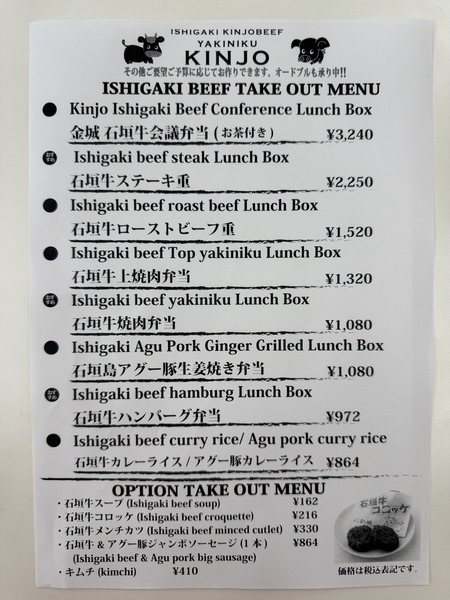 ISHIGAKI KINJOBEEF
YAKINIKU
KINJO
その他ご要望ご予算に応じてお作りできます。オードブルも承り中!!
ISHIGAKI BEEF TAKE OUT MENU
Kinjo Ishigaki Beef Conference Lunch Box
金城 石垣牛会議弁当 (お茶付き) ¥3,240
おすすめ Ishigaki beef steak Lunch Box
石垣牛ステーキ重 ¥2,250
Ishigaki beef roast beef Lunch Box
石垣牛ローストビーフ重 ¥1,520
Ishigaki beef Top yakiniku Lunch Box
石垣牛上焼肉弁当 ¥1,320
おすすめ Ishigaki beef yakiniku Lunch Box
石垣牛焼肉弁当 ¥1,080
Ishigaki Agu Pork Ginger Grilled Lunch Box
石垣島アグー豚生姜焼き弁当 ¥1,080
おすすめ Ishigaki beef hamburg Lunch Box
石垣牛ハンバーグ弁当 ¥972
Ishigaki beef curry rice/ Agu pork curry rice
石垣牛カレーライス / アグー豚カレーライス ¥864
OPTION TAKE OUT MENU
・石垣牛スープ (Ishigaki beef soup) ¥162
・石垣牛コロッケ (Ishigaki beef croquette) ¥216
・石垣牛メンチカツ (Ishigaki beef minced cutlet) ¥330
・石垣牛 & アグー豚ジャンボソーセージ (1 本 ) ¥864
(Ishigaki beef & Agu pork big sausage)
・キムチ (kimchi) ¥410
石垣牛
コロッケ
価格は税込表記です。